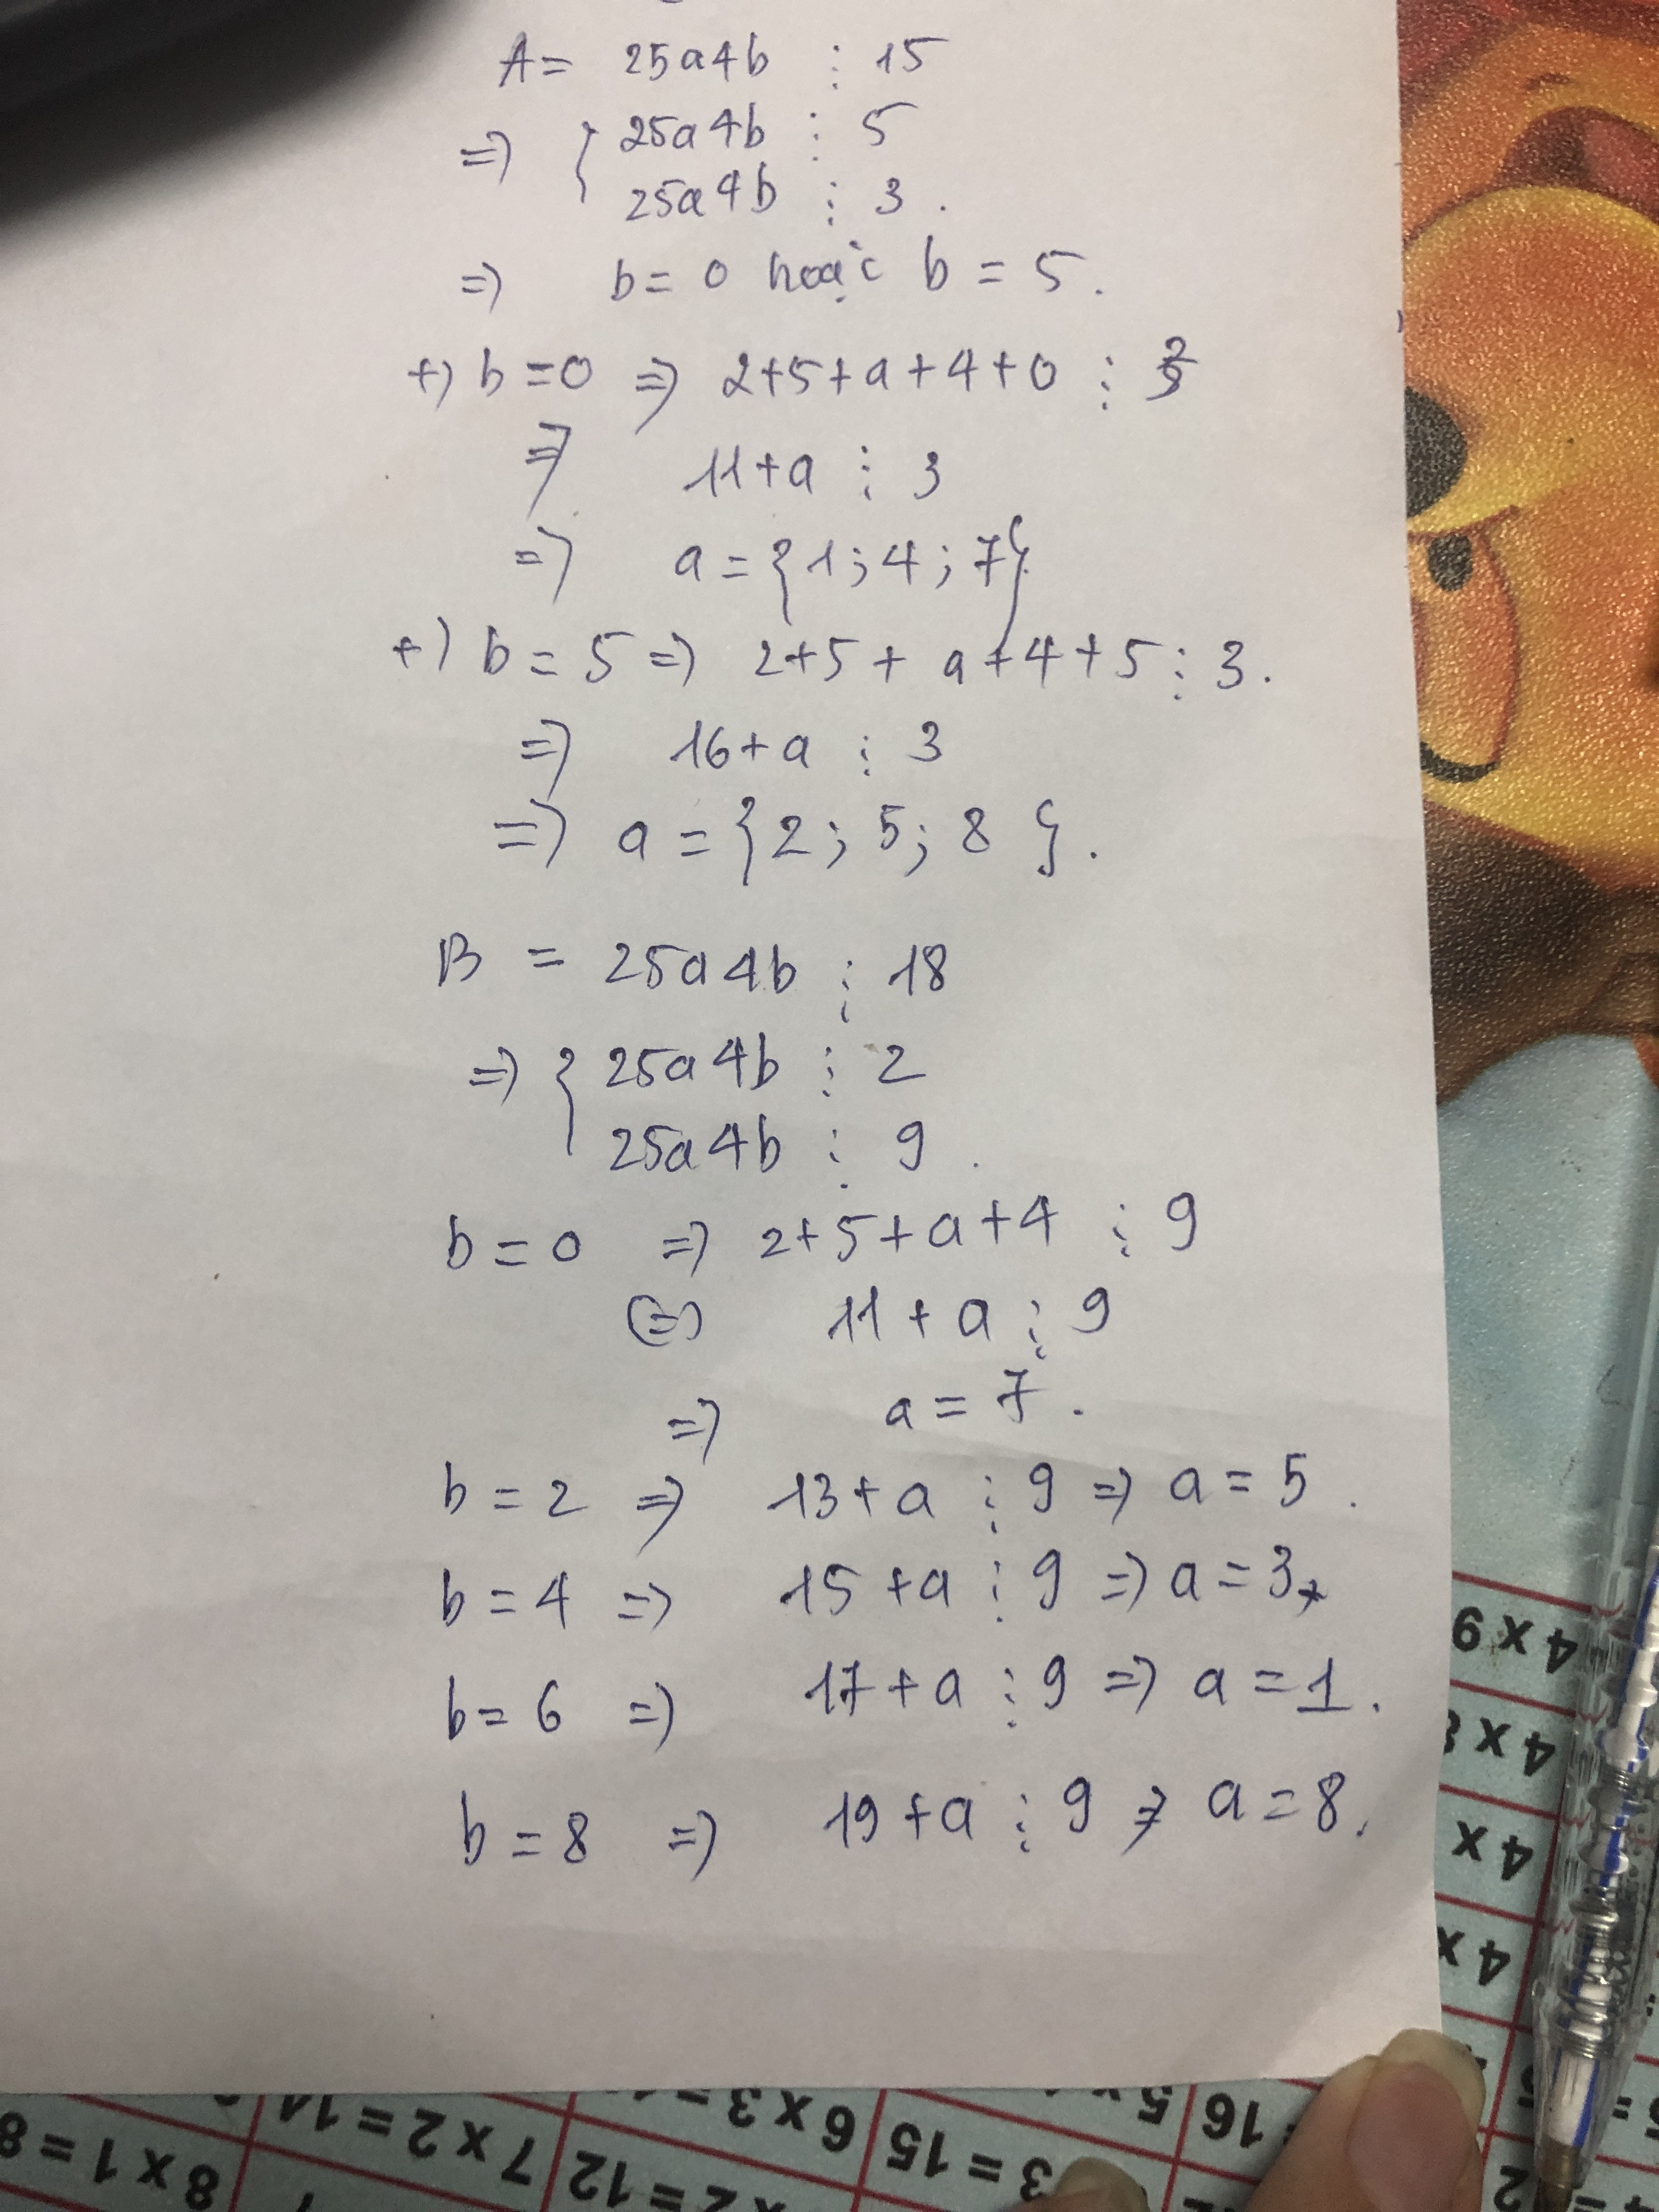 A = 25a4b ⋮ 15
=> { 25a4b ⋮ 5
25a4b ⋮ 3 .
=> b = 0 hoặc b = 5 .
+) b = 0 => 2+5+a+4+0 ⋮ 3
=> 11+a ⋮ 3
=> a = {1; 4; 7}
+) b = 5 => 2+5+a+4+5 ⋮ 3.
=> 16+a ⋮ 3
=> a = {2; 5; 8}.
B = 25a4b ⋮ 18
=> { 25a4b ⋮ 2
25a4b ⋮ 9 .
b = 0 => 2+5+a+4 ⋮ 9
(=) 11+a ⋮ 9
=> a = 7 .
b = 2 => 13+a ⋮ 9 => a = 5 .
b = 4 => 15+a ⋮ 9 => a = 3
b = 6 => 17+a ⋮ 9 => a = 1 .
b = 8 => 19+a ⋮ 9 => a = 8 .
4 x 9
4 x
4 x
4 x
8 x 1 = 8
7 x 2 = 14
6 x 3 =
5 x
16
3 = 15
x 2 = 12